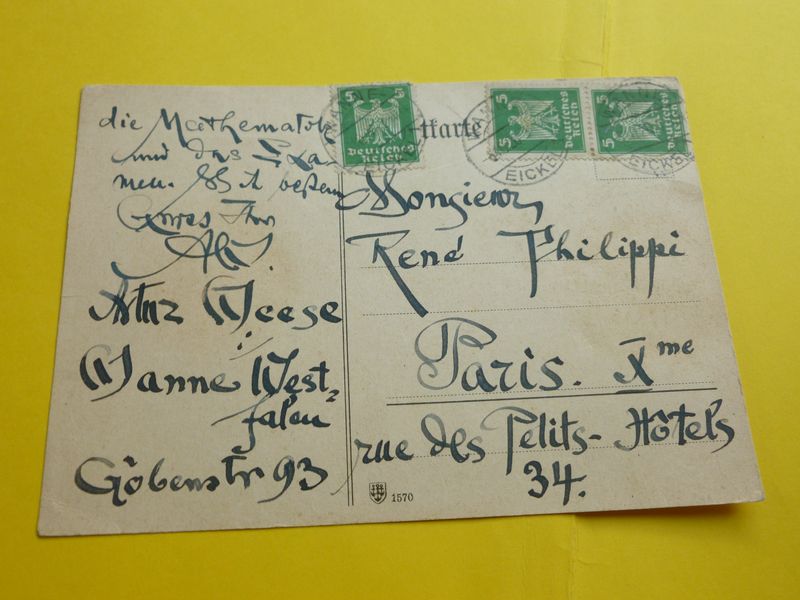 die Mathematik
und das Exa-
men. Ist
Gruss Ihr
Artur Weese
Wanne West-
falen
Göbenstr 93
5 5
Deutsches
Reich
5
Deutsches
Reich
5
Deutsches
Reich
EICKEL
EICKEL
tkarte
Monsieur
René Philippi
Paris. Xme
rue des Petits-Hôtels
34.
1570